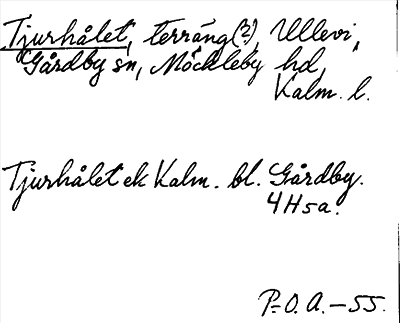 Tjurhålet, terräng(?), Ullevi,
Gårdby sn, Möckleby hd,
Kalm. l.
Tjurhålet ek Kalm. bl. Gårdby.
4H5a.
P.-O. A. – 55.